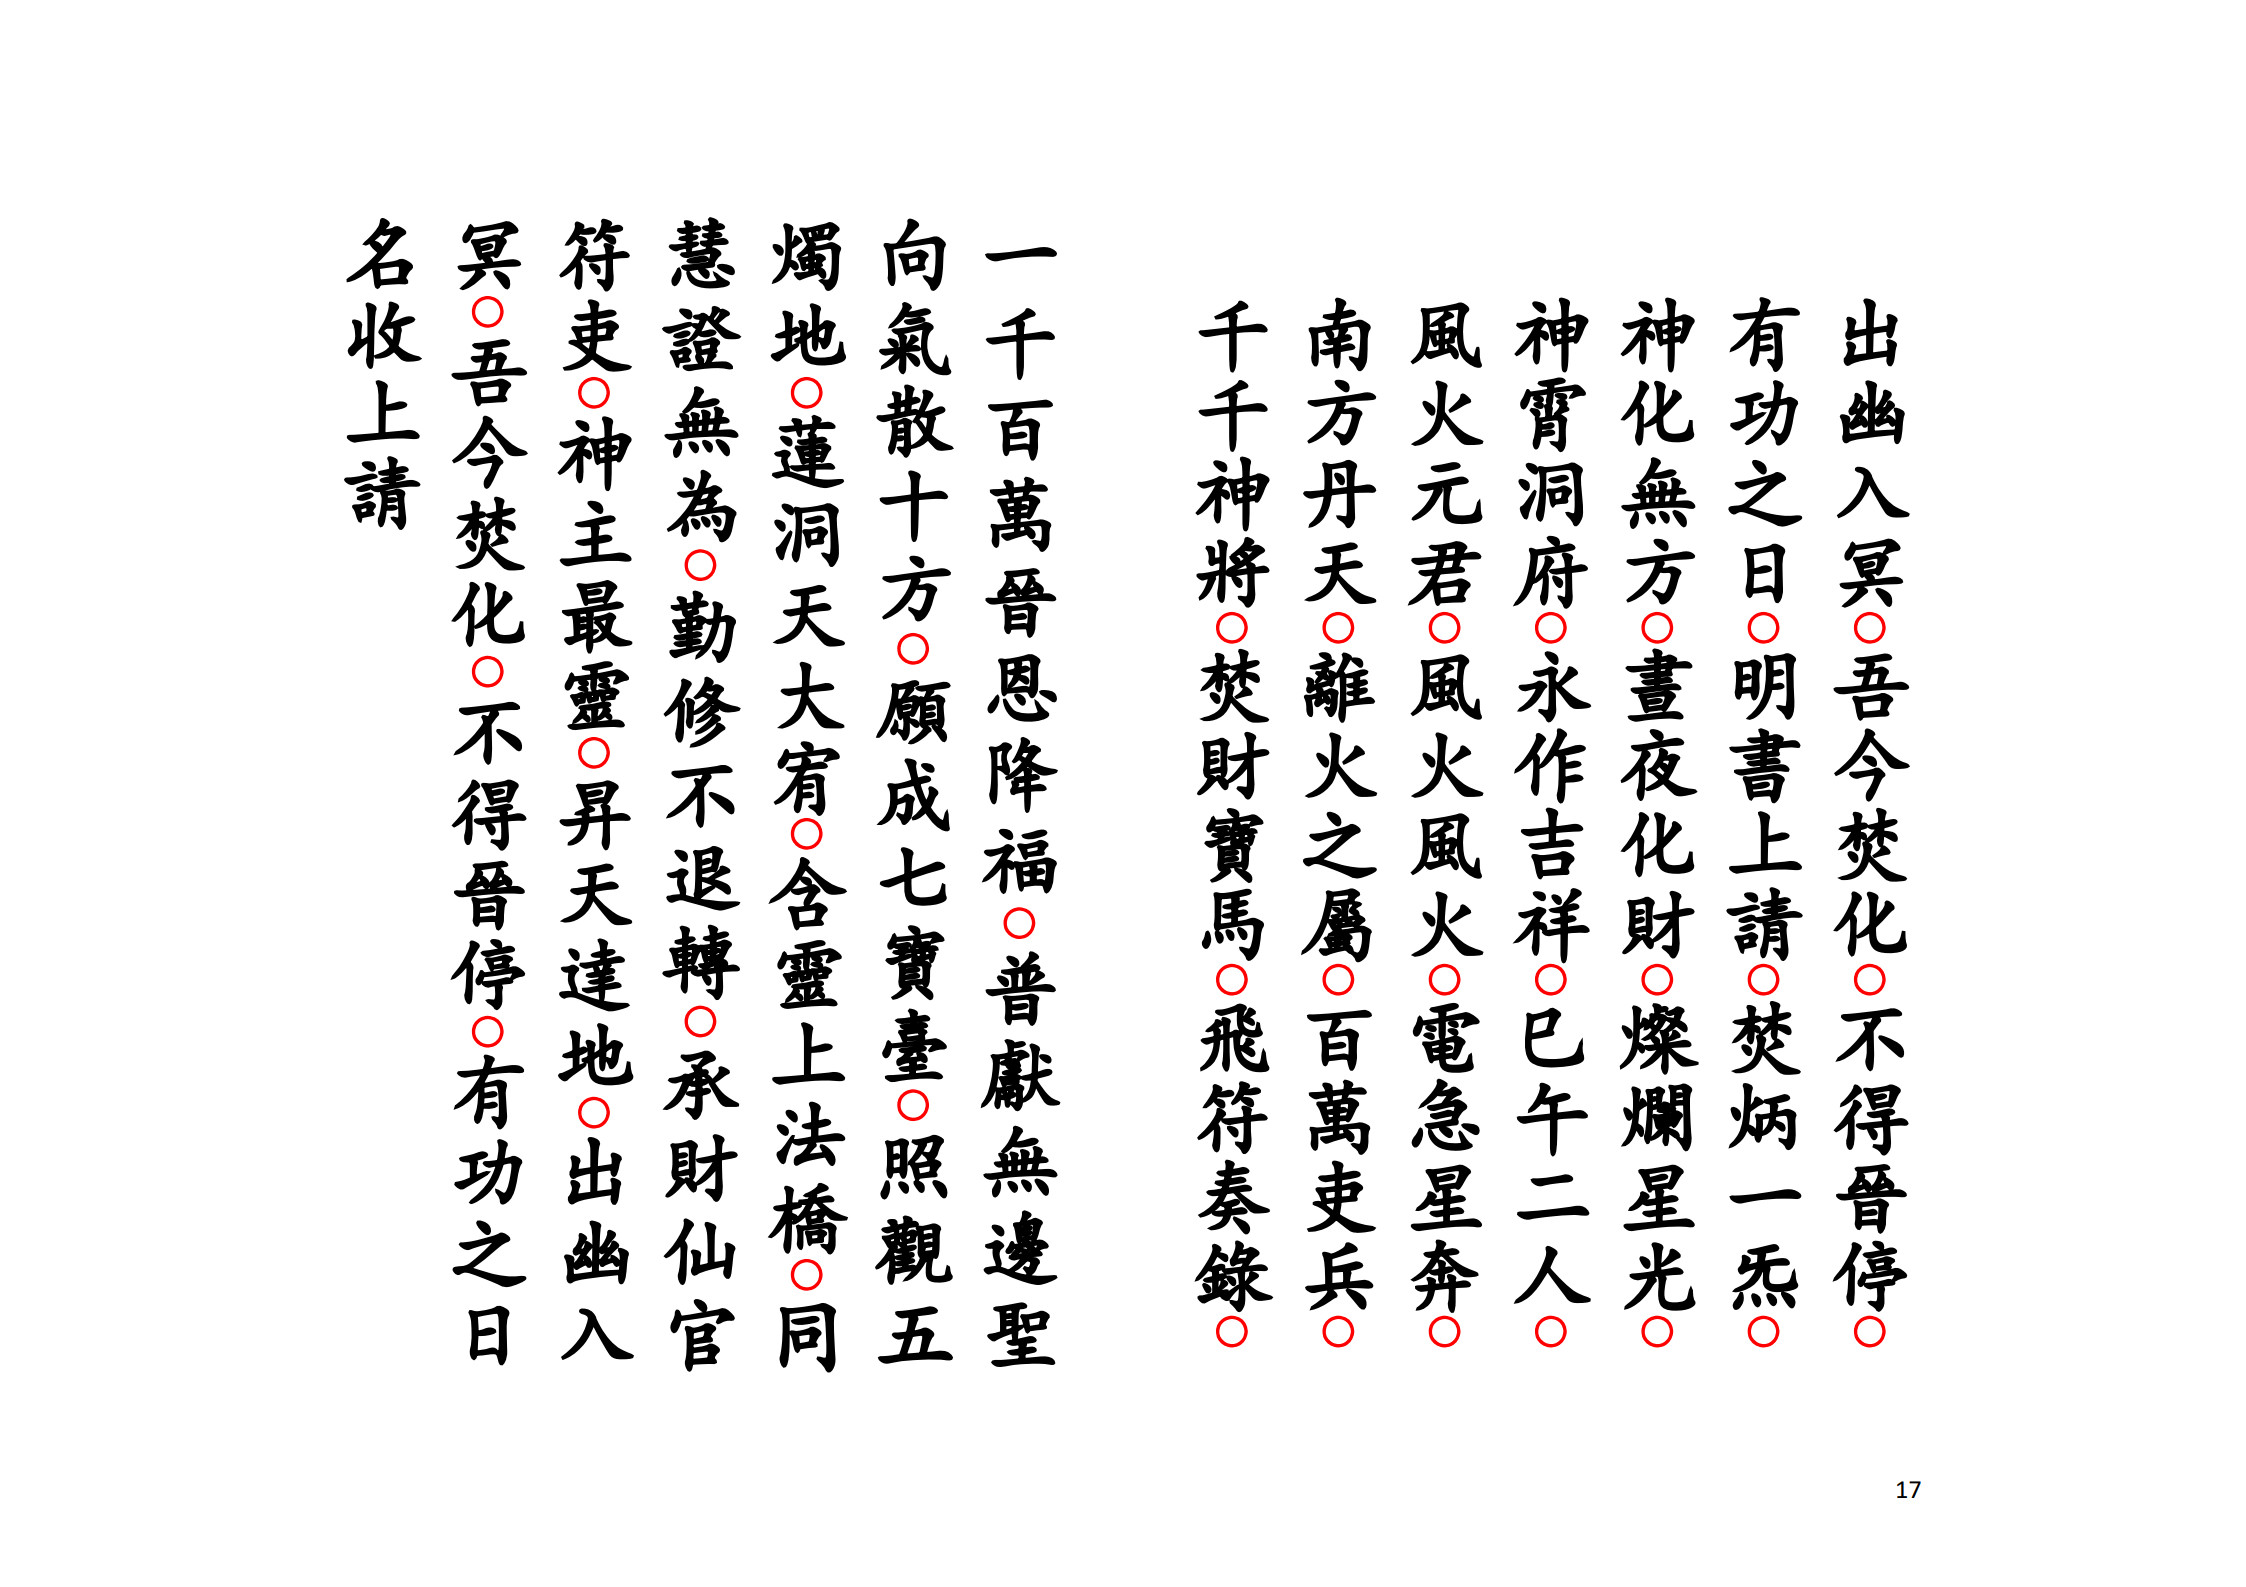 出幽入冥○吾今焚化○不得晉停○
有功之日○明書上請○焚炳一炁○
神化無方○晝夜化財○燦爛星光○
神霄洞府○永作吉祥○巳午二人○
風火元君○風火風火○電急星奔○
南方丹天○離火之屬○百萬吏兵○
千千神將○焚財寶馬○飛符奏錄○
一千百萬晉恩降福○普獻無邊聖
向氣散十方○願成七寶臺○照觀五
燭地○蓮洞天大宥○含靈上法橋○同
慧證無為○勤修不退轉○承財仙官
符吏○神主最靈○昇天達地○出幽入
冥○吾今焚化○不得晉停○有功之日
名收上請
17